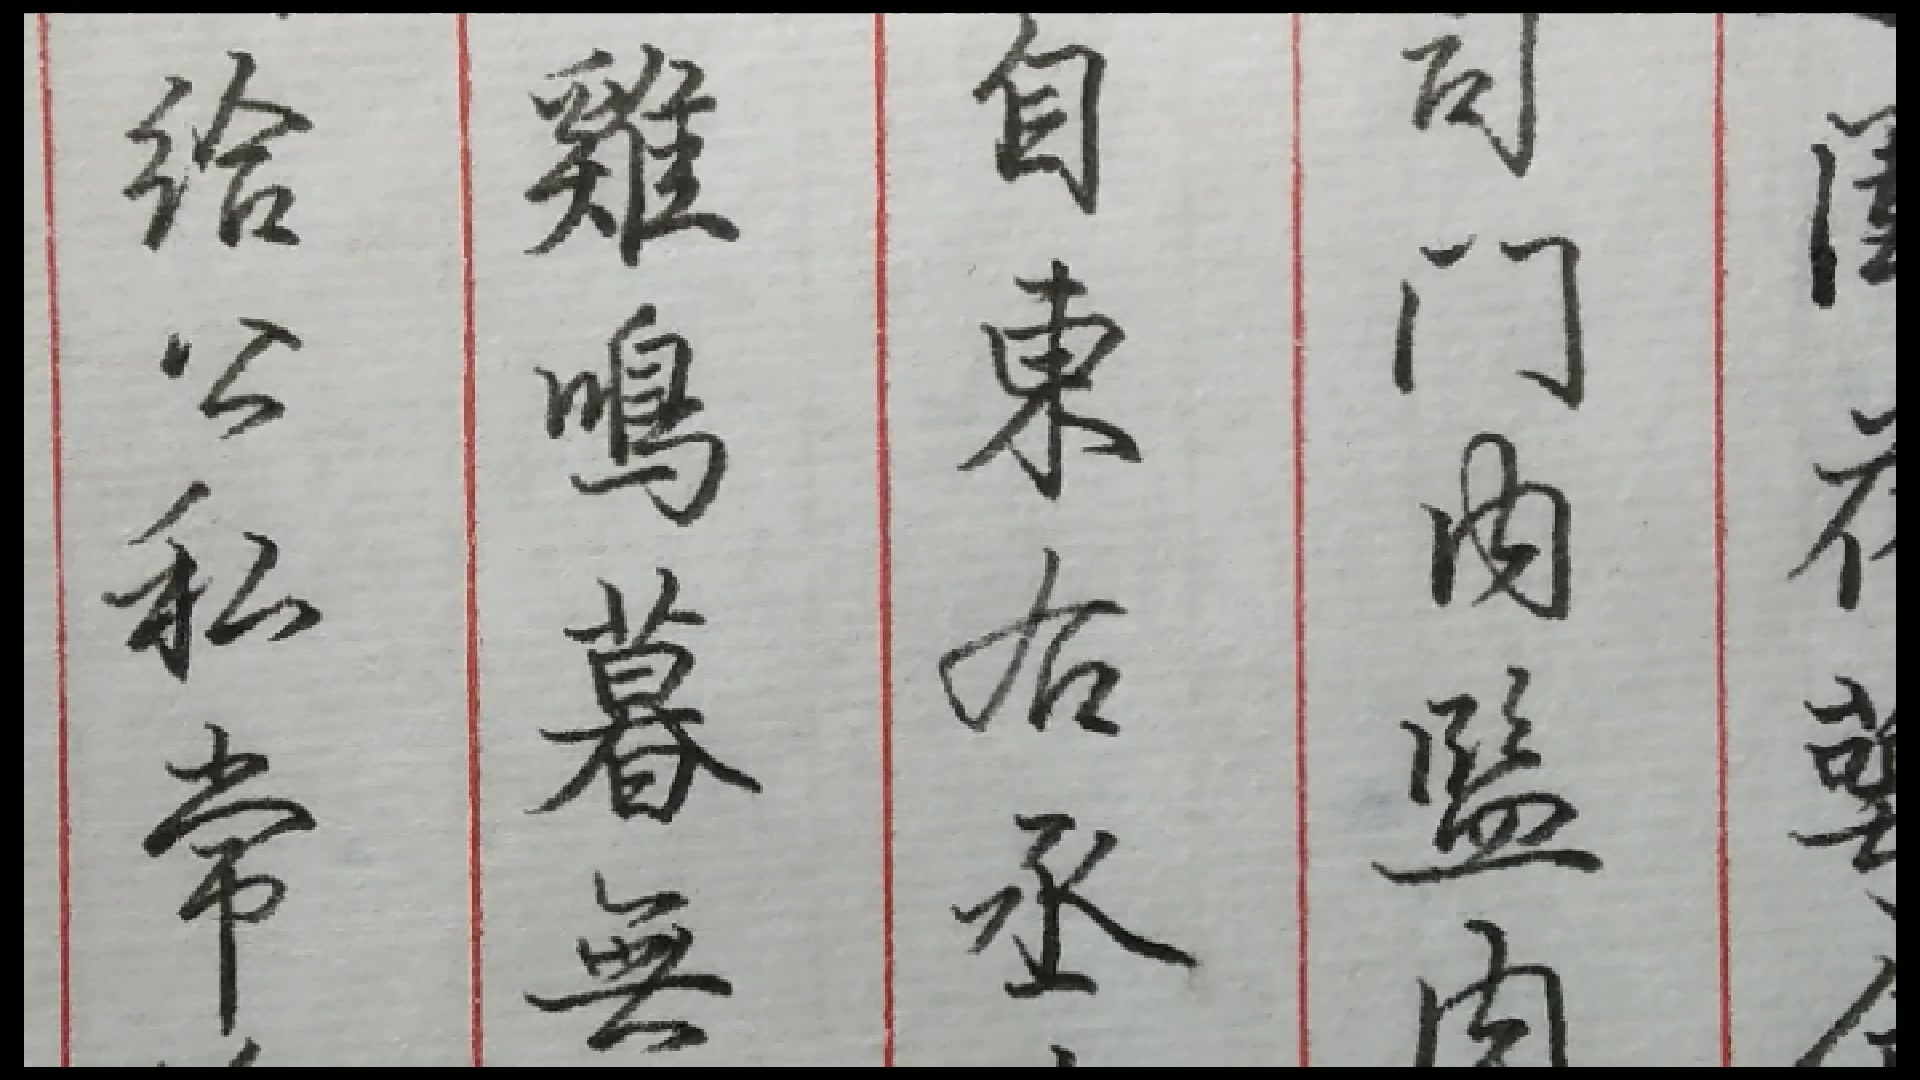 司门内監内
自東右丞
雞鳴暮無
給公私常